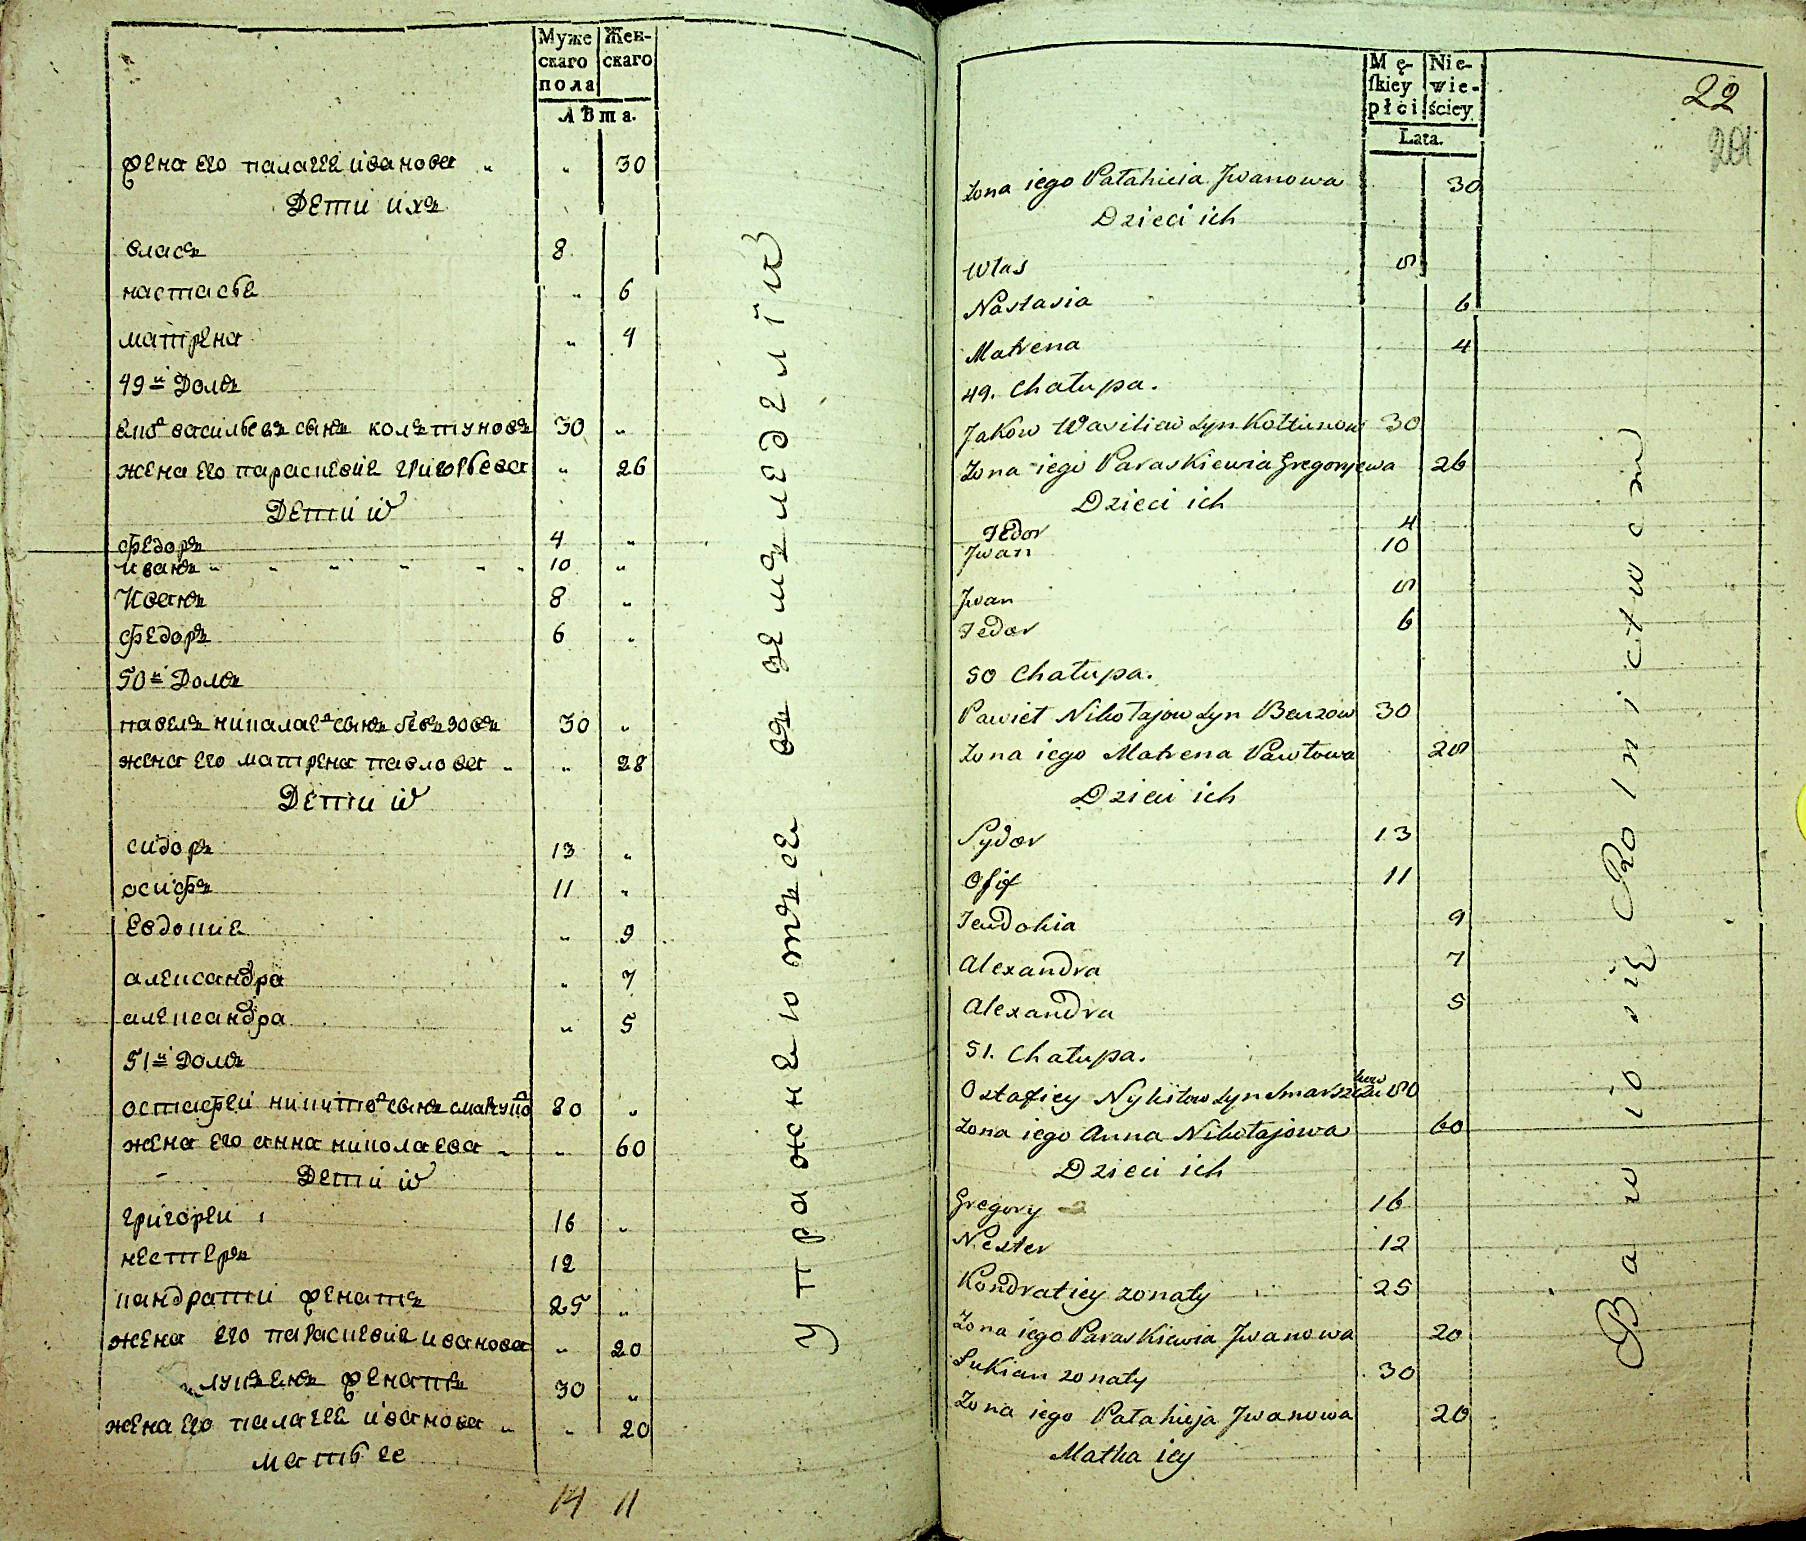 Муже
скаго
пола
Жен-
скаго
Лѣта.
жена его палагее иванова „ „ 30
Дети ихъ
власъ 8
настасье „ 6
матрена „ 4
49й Домъ
васильевъ сынъ колътуновъ 30 „
жена его параскевие григорьева „ 26
Дети их
федоръ 4 „
иванъ 10 „
Иванъ 8 „
федоръ 6 „
50й Домъ
павелъ никалаев сынъ бевъзовъ 30 „
жена его матрена павлова „ „ 28
Дети их
сидоръ 13 „
осифъ 11 „
Евдокие „ 9
александра „ 7
александра „ 5
51й Домъ
остафей никитов сынъ 80 „
жена его анна николаева „ „ 60
Дети их
григорей 16 „
нестеръ 12
кандратий женатъ 25 „
жена его параскевие иванова „ 20
лукъенъ женатъ 30 „
жена его палагее иванова „ „ 20
мать ее
14 11
упражнеютъсе въ земъледелїи
Mę-
ſkiey
płci
Nie-
wie-
ściey
Lata.
22
201
Żona iego Palahieia Jwanowa 30
Dzieci ich
Włas 8
Nastasia 6
Matrena 4
49. Chałupa.
Jakow Wasiliew syn Kołtunow 30
Żona iego Paraskiewia Gregorjewa 26
Dzieci ich
Fedor 4
Jwan 10
Jwan 8
Fedor 6
50 Chałupa.
Pawieł Nikołajow syn Bewzow 30
Żona iego Matrena Pawłowa 28
Dzieci ich
Sydor 13
Osif 11
Jeudokia 9
Alexandra 7
Alexandra 5
51. Chałupa.
Ostafiey Nykitow syn 80
Żona iego Anna Nikołajowa 60
Dzieci ich
Gregory 16
Nester 12
Kondratiey żonaty 25
Żona iego Paraskiewia Jwanowa 20
Łukian żonaty 30
Żona iego Palahieja Jwanowa 20
Matka iey
Bawio się Rolnictwem